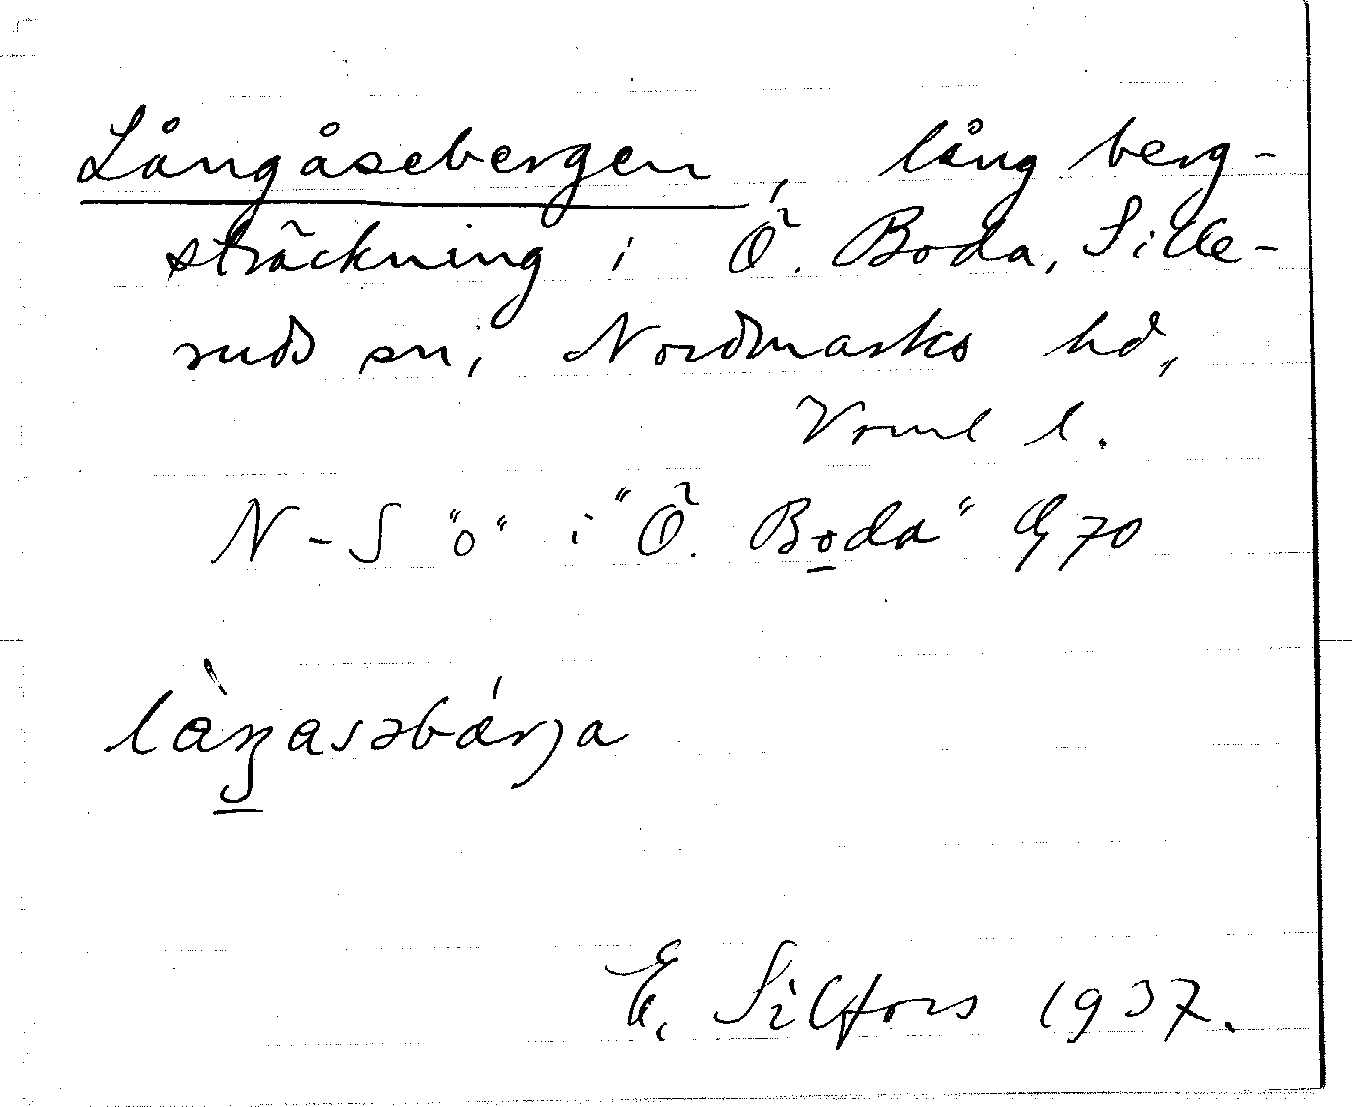 Långåsebergen, lång berg-
sträckning i Ö. Boda, Sille-
ruds sn, Nordmarks hd,
Vrml l.
N-S "o" i "Ö. Boda" Eg 70
làŋasəbárja
E. Silfors 1937.